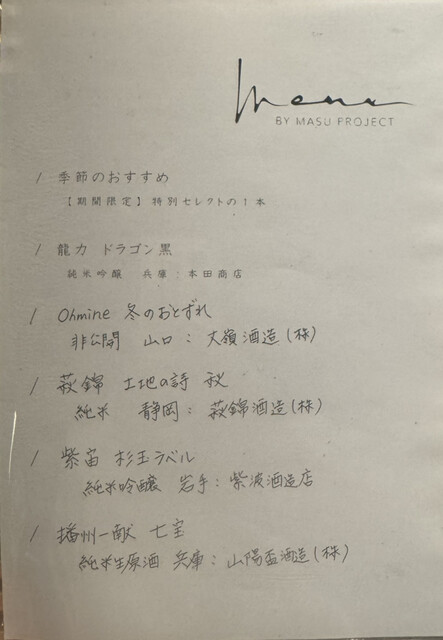 Menu
BY MASU PROJECT
/ 季節のおすすめ
【期間限定】特別セレクトの1本
/ 龍力 ドラゴン黒
純米吟醸 兵庫：本田商店
/ Ohmine 冬のおとずれ
非公開 山口：大嶺酒造(株)
/ 萩錦 土地の詩 秋
純米 静岡：萩錦酒造(株)
/ 紫宙 杉玉ラベル
純米吟醸 岩手：紫波酒造店
/ 播州一献 七宝
純米生原酒 兵庫：山陽盃酒造(株)